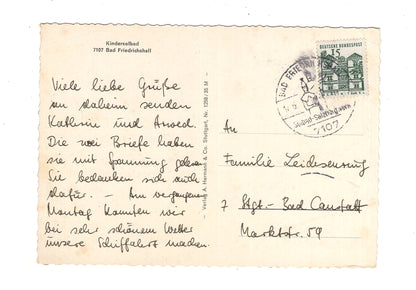 Kindersolbad
7107 Bad Friedrichshall
Viele liebe Grüße
an daheim senden
Kathrin und
Die zwei Briefe haben
sie mit Spannung gelesen.
Sie bedanken sich auch
dafür. – Am vergangenen
Montag konnten wir
bei sehr schönem Wetter
unsere Schiffahrt machen.
Verlag A. Hermann & Co. Stuttgart, Nr.
15
DEUTSCHE BUNDESPOST
BAD FRIEDRICHSHALL
7107
An
Familie
7 Stgt - Bad Cannstatt
Marktstr. 59